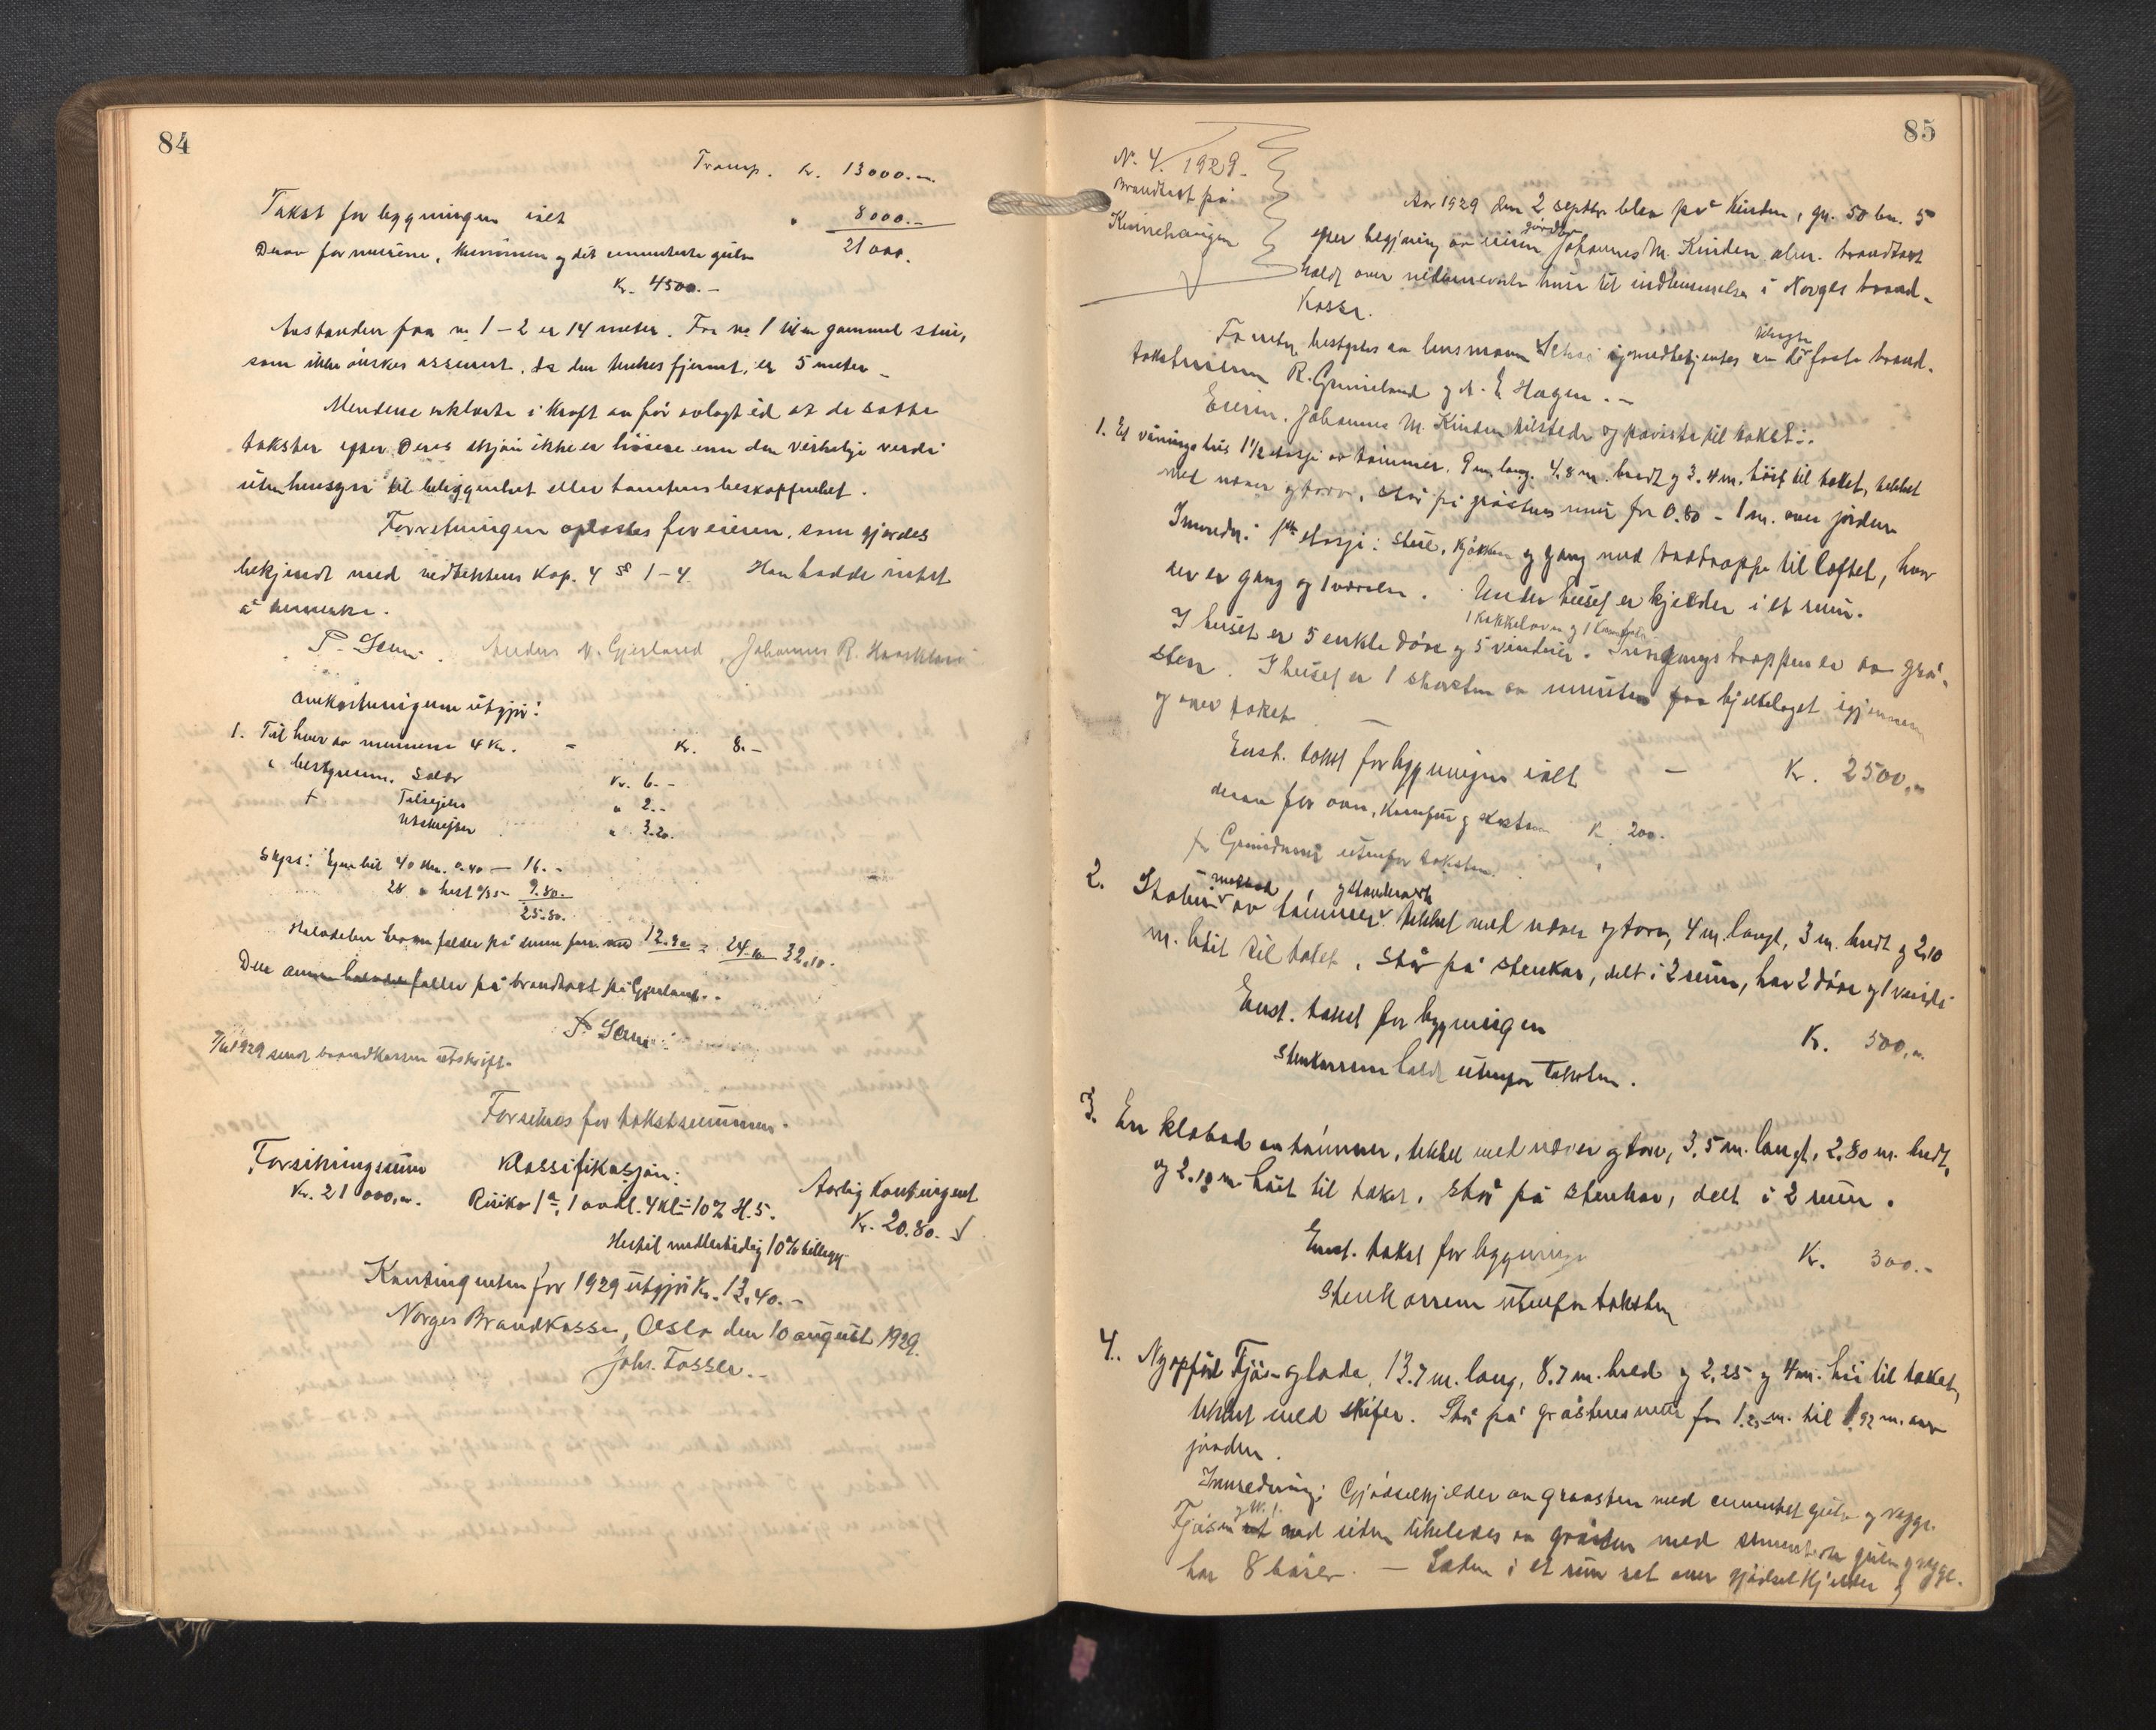 84
Transp. Kr. 13000.-
Takst for bygningen ialt " 8000.-
Derav for murene, kummen og det cementerte gulv 21000.
Kr. 4500.-
Avstanden fra nr 1-2 er 14 meter. Fra no 1 til en gammel stue,
som ikke önskes assurert, da den tenkes fjernet, er 5 meter -
Mendene erklærte i kraft av för avlagt ed at de satte
takster efter deres skjön ikke er höiere enn den virkelige verdi
uten hensyn til beliggenhet eller tomtens beskaffenhet.
Forretningen oplæstes for eieren, som gjordes
bekjendt med vedtektens Kap. 4 §§ 1-4. Han hadde intet
å bemerke.
Anders N. Gjerland, Johannes R.
Omkostningene utgjör:
1. Til hver av mennene 4 Kr. - Kr. 8.-
" bestyreren. Salær Kr. 6.-
" 2.-
Utskrifter " 3.20.
Skyss: Egen bil 40 km. 0.40 - 16.-
28 " hest 0/35 - 9.80.
25.80.
Halvdelen herav falder på denne forr. med 12.90 = 24.10 32.10.
Den annen halvdel faller på brandtakst på Gjerland.
1929 sendt brandkassen utskrift.
Forsikres for takstsummen.
Forsikringssum Klassifikasjon: Aarlig Kontingent
Kr. 21 000,-. Risiko 1a, 1 avdl. 4 kl ÷ 10% H.5. Kr. 20.80.
Hertil midlertidig 10% tillegg
Kontingenten for 1929 utgjör Kr. 13.40.-
Norges Brandkasse, Oslo den 10 august 1929.
Johs. Fosse.-
85
N. 4. 1929.
Brandtakst på
Kinnehaugen
Aar 1929 den 2 septbr blev på Kinden, gr. 50 bn. 5
efter begjæring av eieren gårdbr Johannes M. Kinden alm. brandtakst
holdt over nedennevnte huse til indlemmelse i Norges brand-
kasse.
Forretn. bestyrtes av lensmann og medbetjentes av de tilsagte faste brand-
takstmenn R. Grimeland og A. E. Hagen.-
Eieren, Johannes M. Kinden tilstede og påviste til takst:
1. Et våningshus 1 1/2 etasje av tömmer. 9 m. lang. 4.8 m. bredt og 3.4 m. höit til taket, tekket
med never og torv, står på gråstensmur fra 0.80 - 1 m. over jorden
Innreden: 1ste etasje: Stue, kjökken og gang med trætrappe til loftet, hvor
der er gang og 1 værelse. Under huset er kjelder i et rum.
1 kakkelovn og 1 komfur
I huset er 5 enkle döre og 5 vinduer. Inngangstrappen er av grå-
sten. I huset er 1 skorsten av mursten fra kjellelaget igjennem
og over taket. -
Enst. takst for bygningen ialt - Kr. 2500,-
derav for ovn, komfur og skorsten Kr. 200.
for Grundmur utenfor taksten.
2. Stabur av tömmer tekket med never og torv, 4 m. langt, 3 m. bredt og 2,10
m. höit til taket, står på stenkar, delt i 2 rum, har 2 döre og 1 vindu
Enst. takst for bygningen Kr. 500,-.
Stenkarrene holdt utenfor taksten.
3. En klebod av tömmer, tekket med never og torv, 3,5 m. langt, 2.80 m. bredt,
og 2.10 m. höit til taket. Står på stenkar, delt i 2 rum.
Enst. takst for bygningen Kr. 300.-
Stenkarrene utenfor taksten
4. Nyopfört Fjös og lade, 13.7 m. lang, 8.7 m. bred og 2.25 og 4 m. höi til taket,
tekket med skifer. Står på gråstensmur fra 1.25 m. til 1.92 m. over
jorden.
Innredning: Gjödselkjelder av graasten med cementert gulv og vegge.
Fjösen ved siden likeledes av gråsten med sementerte gulv og vegge.
har 8 båser. - Laden i et rum rett over gjödselkjelder og